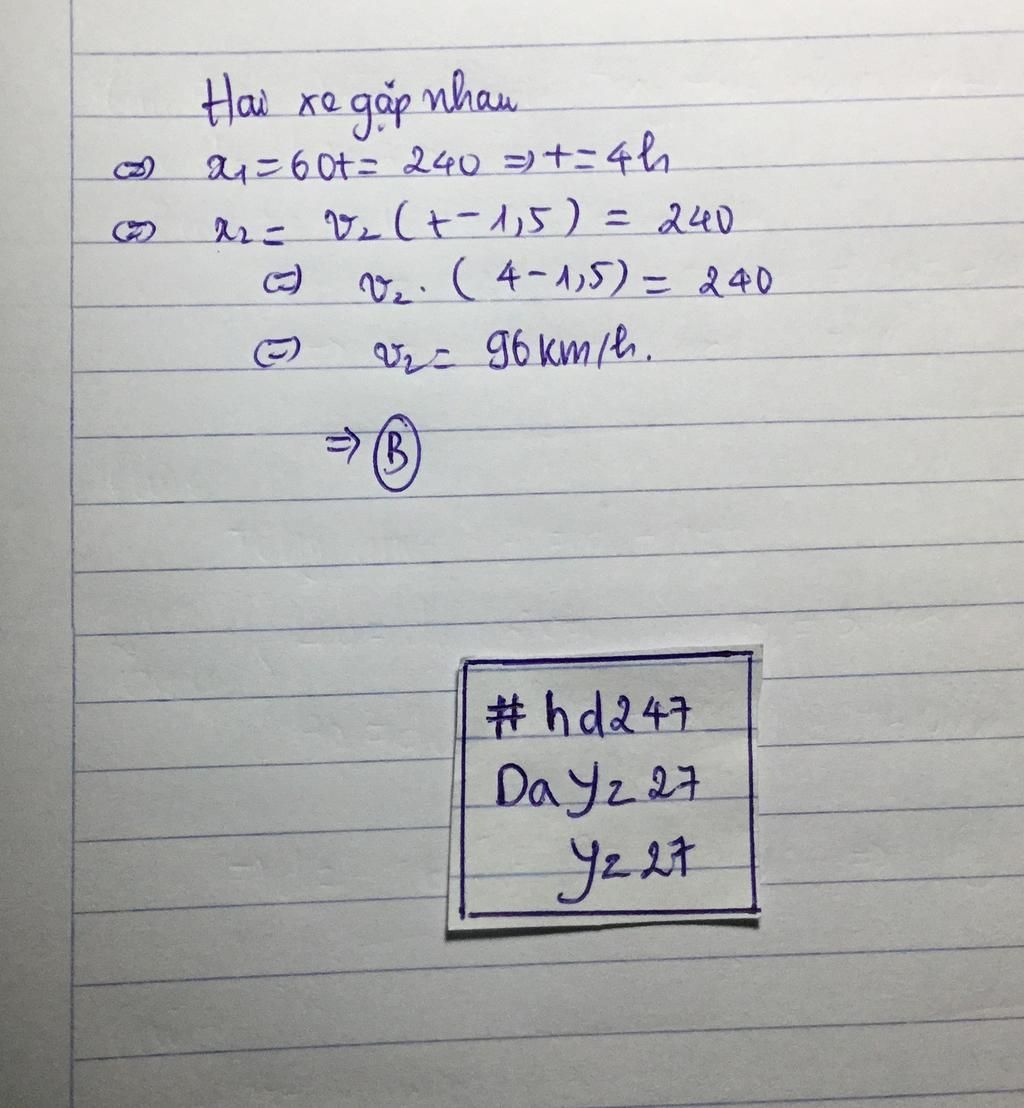 Hai xe gặp nhau
⇔ x₁ = 60t = 240 ⇒ t = 4h
⇔ x₂ = v₂ (t - 1,5) = 240
⇔ v₂. (4 - 1,5) = 240
⇔ v₂ = 96 km/h.
⇒ B
#hd247
DaYz27
Yz27